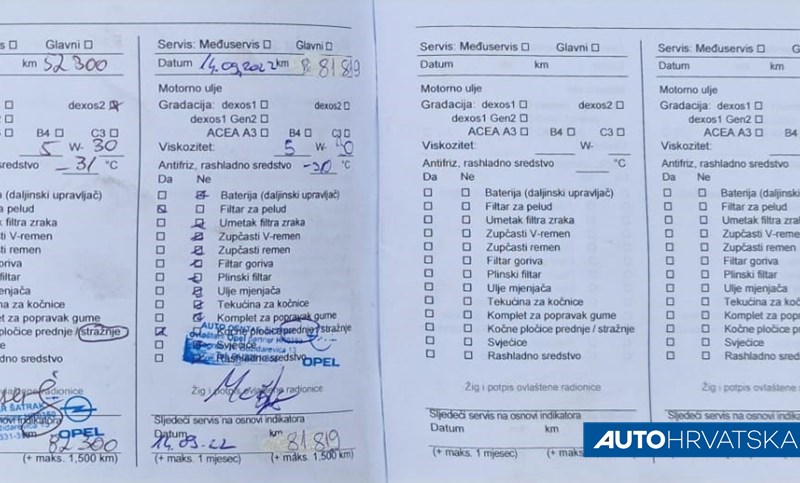 Glavni
km 52 300
dexos2
B4 C3
5 W- 30
redstvo -31 °C
(daljinski upravljač)
stražnje
OPEL
82 300
(+ maks. 1,500 km)
Servis: Međuservis Glavni
Datum 14.09.2022 km 81 819
Motorno ulje
Gradacija: dexos1 dexos2
dexos1 Gen2
ACEA A3 B4 C3
Viskozitet: 5 W-
Antifriz, rashladno sredstvo °C
Da Ne
Baterija (daljinski upravljač)
Filtar za pelud
Umetak filtra zraka
Zupčasti V-remen
Zupčasti remen
Filtar goriva
Plinski filtar
Ulje mjenjača
Tekućina za kočnice
Komplet za popravak gume
Kočne pločice prednje / stražnje
Svjećice
Rashladno sredstvo
OPEL
Žig i potpis ovlaštene radionice
Sljedeći servis na osnovi indikatora
Datum km
14.09.22 81.819
(+ maks. 1 mjesec) (+ maks. 1,500 km)
Servis: Međuservis Glavni
Datum km
Motorno ulje
Gradacija: dexos1 dexos2
dexos1 Gen2
ACEA A3 B4 C3
Viskozitet: W-
Antifriz, rashladno sredstvo °C
Da Ne
Baterija (daljinski upravljač)
Filtar za pelud
Umetak filtra zraka
Zupčasti V-remen
Zupčasti remen
Filtar goriva
Plinski filtar
Ulje mjenjača
Tekućina za kočnice
Komplet za popravak gume
Kočne pločice prednje / stražnje
Svjećice
Rashladno sredstvo
Žig i potpis ovlaštene radionice
Sljedeći servis na osnovi indikatora
Datum km
(+ maks. 1 mjesec)
Servis: Međuservis
Datum
Motorno ulje
Gradacija: dexos1
dexos1 Gen2
ACEA A3 B4
Viskozitet:
Antifriz, rashladno sredstvo
Da Ne
Baterija (daljinski
Filtar za pelud
Umetak filtra
Zupčasti
Zupčasti
Filtar goriva
Plinski filtar
Ulje mjenjača
Tekućina za
Komplet za
Kočne pločice
Svjećice
Rashladno
Žig i potpis
AUTOHRVATSKA